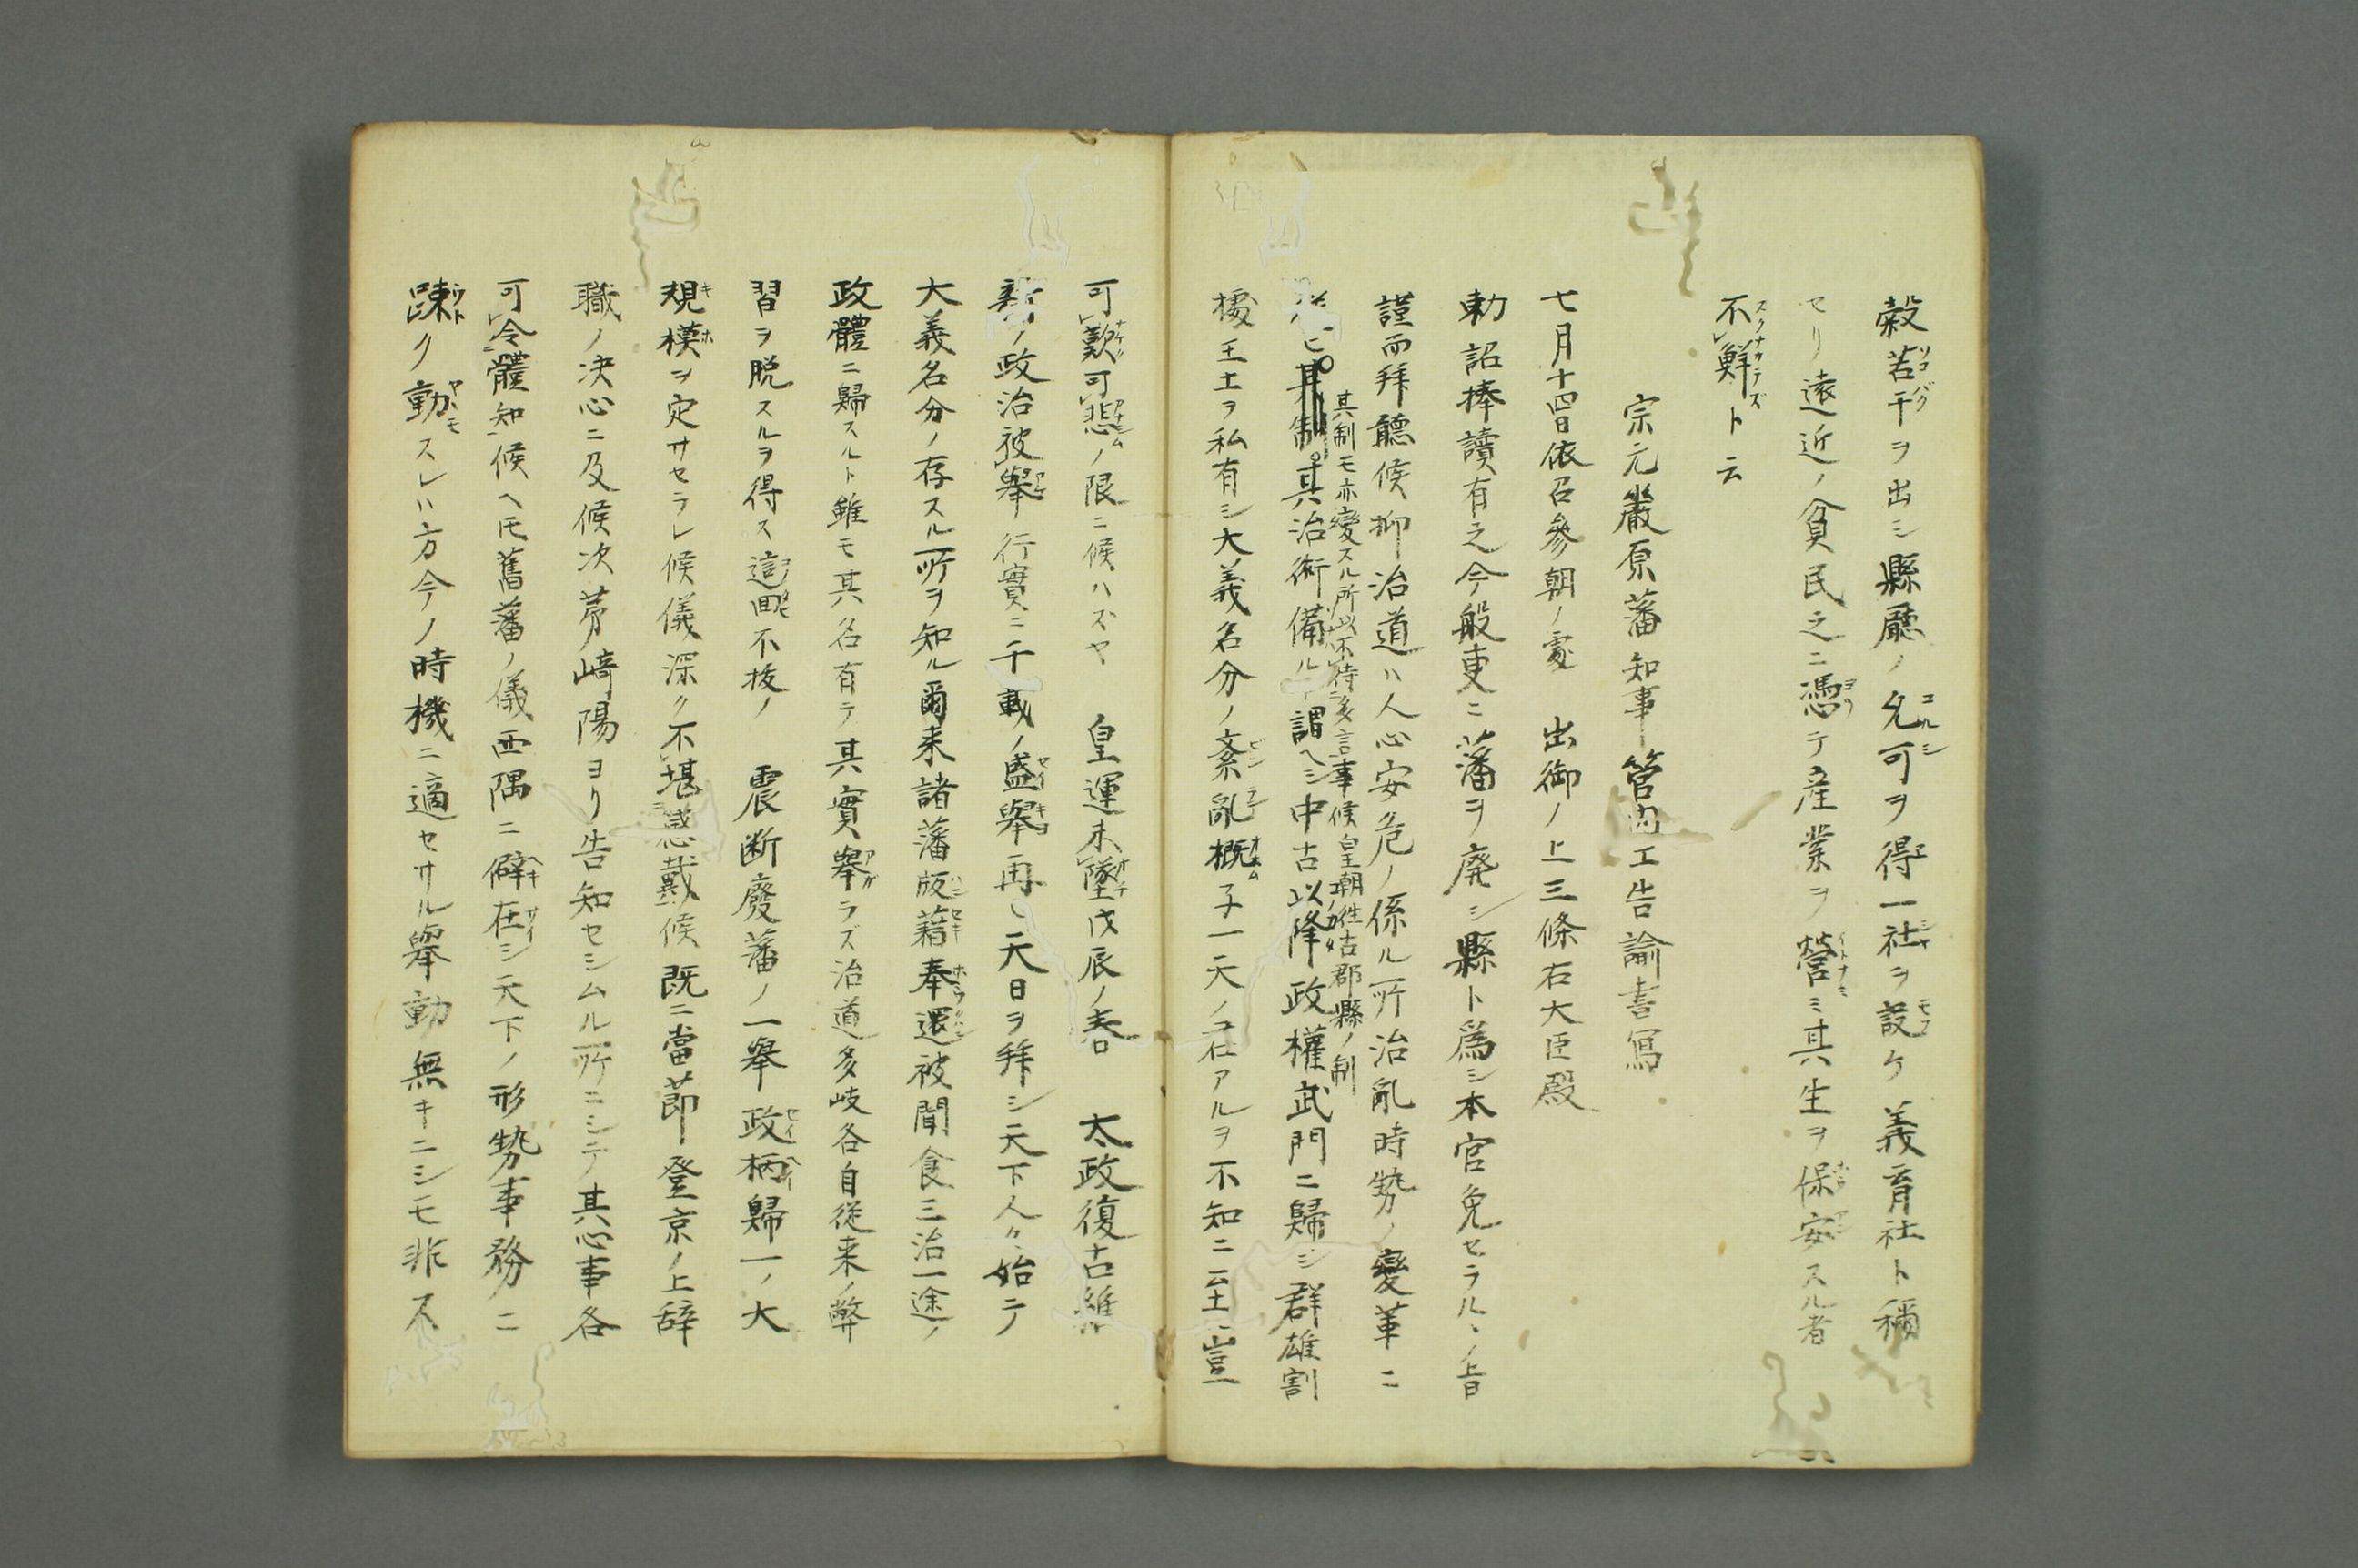 穀若干ヲ出シ縣廳ノ允可ヲ得一社ヲ設ケ義育社ト稱
セリ遠近ノ貧民之ニ憑テ産業ヲ營ミ其生ヲ保安スル者
不鮮ト云
宗元嚴原藩知事管内エ告諭書寫
七月十四日依召參朝ノ處 出御ノ上三條右大臣殿
勅詔捧讀有之今般更ニ藩ヲ廃シ縣ト爲シ本官免セラルヽノ旨
謹而拜聽候抑治道ハ人心安危ノ係ル所治亂時勢ノ變革ニ
其制モ亦變スル所以不待多言事候皇朝往古郡縣ノ制
其制其治術備ルト謂ヘシ中古以降政權武門ニ歸シ群雄割
據王土ヲ私有シ大義名分ノ紊亂概子一天ノ君アルヲ不知ニ至ル豈
可歎可悲ノ限ニ候ハズヤ 皇運未墜戊辰ノ春 太政復古維
新ノ政治被擧行實ニ千載ノ盛擧再ヒ天日ヲ拜シ天下人々始テ
大義名分ノ存スル所ヲ知ル爾来諸藩版籍奉還被聞食三治一途ノ
政體ニ歸スルト雖モ其名有テ其實擧ラズ治道多岐各自従来ノ弊
習ヲ脱スルヲ得ス這囬不抜ノ 震断廢藩ノ一擧政柄歸一ノ大
規模ヲ定サセラレ候儀深ク不堪感戴候既ニ當節登京ノ上辞
職ノ决心ニ及候次第崎陽ヨリ告知セシムル所ニシテ其心事各
可令體知候ヘ𪜈舊藩ノ儀西隅ニ僻在シ天下ノ形勢事務ニ
踈ク動スレハ方今ノ時機ニ適セサル擧動無キニシモ非ス